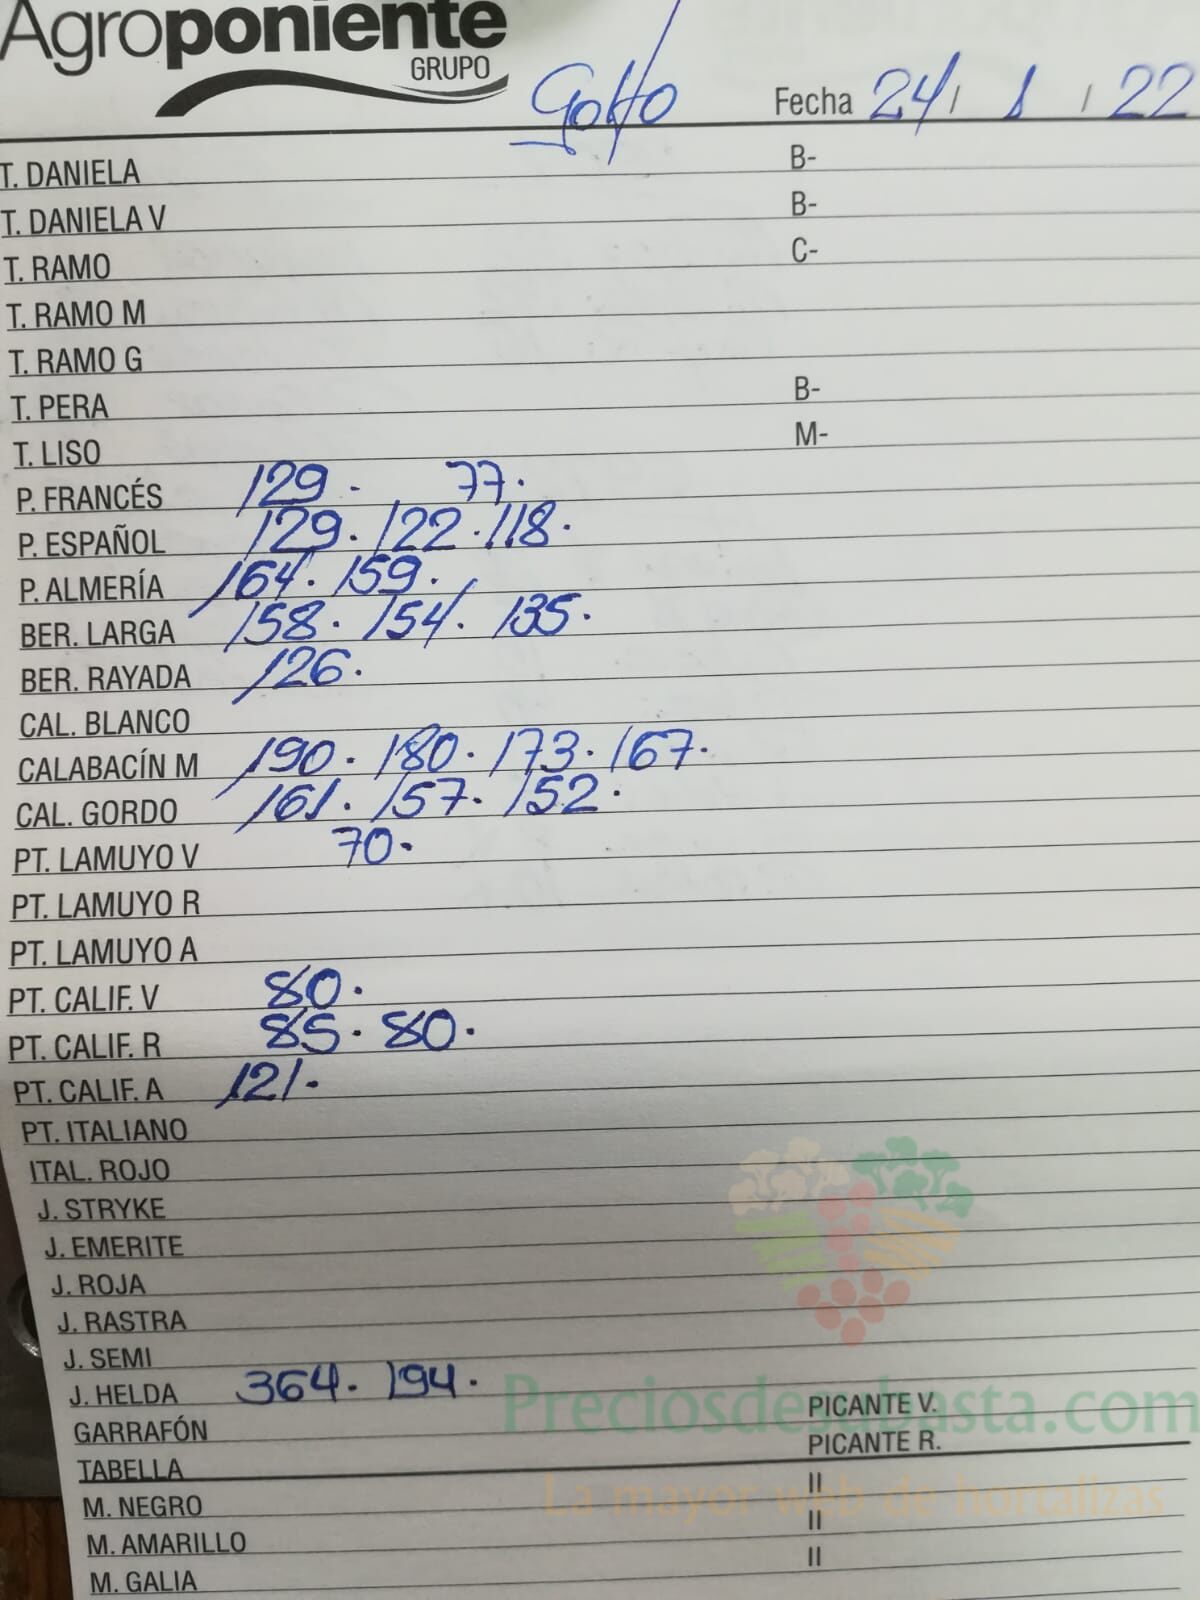 Agroponiente
GRUPO
Golfo
Fecha 24/ 1 / 22
T. DANIELA B-
T. DANIELA V B-
T. RAMO C-
T. RAMO M
T. RAMO G
T. PERA B-
T. LISO M-
P. FRANCÉS 129 . 77.
P. ESPAÑOL 129. 122. 118.
P. ALMERÍA 164. 159.
BER. LARGA 158. 154. 135.
BER. RAYADA 126.
CAL. BLANCO
CALABACÍN M 190. 180. 173. 167.
CAL. GORDO 161. 157. 152.
PT. LAMUYO V 70.
PT. LAMUYO R
PT. LAMUYO A
PT. CALIF. V 80.
PT. CALIF. R 85. 80.
PT. CALIF. A 121.
PT. ITALIANO
ITAL. ROJO
J. STRYKE
J. EMERITE
J. ROJA
J. RASTRA
J. SEMI
J. HELDA 364. 194.
Preciosdesubasta.com
GARRAFÓN PICANTE V.
TABELLA PICANTE R.
La mayor web de hortalizas
M. NEGRO II
M. AMARILLO II
M. GALIA II